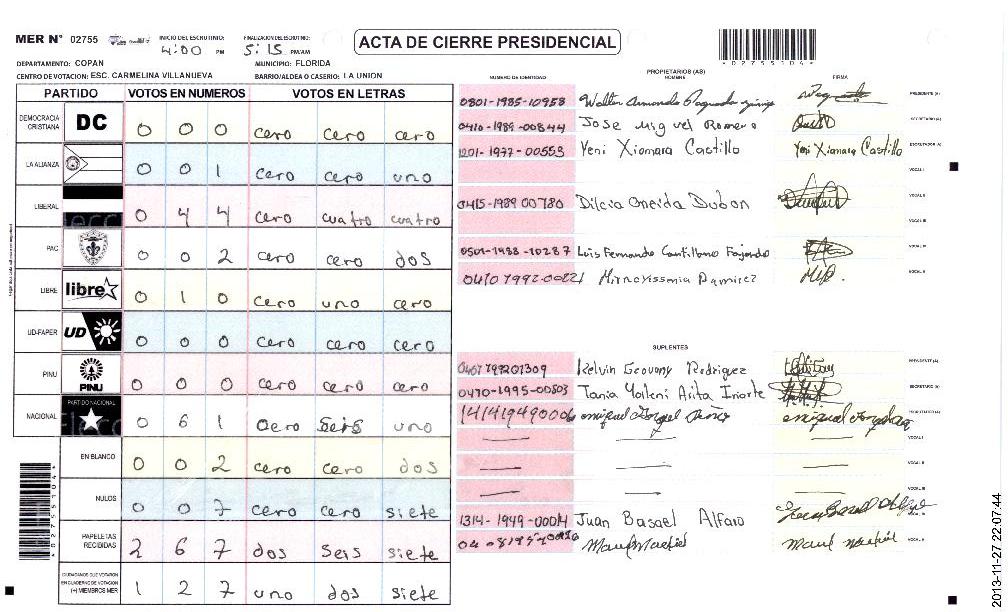 MER N° 02755 INICIO DEL ESCRUTINIO: 4:00 PM FINALIZACION DEL ESCRUTINIO: 5:15 PM/AM ACTA DE CIERRE PRESIDENCIAL
*02755104*
DEPARTAMENTO: COPAN MUNICIPIO: FLORIDA
CENTRO DE VOTACION: ESC. CARMELINA VILLANUEVA BARRIO/ALDEA O CASERIO: LA UNION
PARTIDO VOTOS EN NUMEROS VOTOS EN LETRAS
DEMOCRACIA CRISTIANA DC 0 0 0 cero cero cero
LA ALIANZA 0 0 1 cero cero uno
LIBERAL 0 4 4 cero cuatro cuatro
PAC 0 0 2 cero cero dos
LIBRE libre 0 1 0 cero uno cero
UD-FAPER UD 0 0 0 cero cero cero
PINU PINU 0 0 0 cero cero cero
NACIONAL PARTIDO NACIONAL 0 6 1 cero seis uno
EN BLANCO 0 0 2 cero cero dos
NULOS 0 0 7 cero cero siete
PAPELETAS RECIBIDAS 2 6 7 dos seis siete
CIUDADANOS QUE VOTARON EN CUADERNO DE VOTACION (+) MIEMBROS MER 1 2 7 uno dos siete
*02755104*
PROPIETARIOS (AS)
NUMERO DE IDENTIDAD NOMBRE FIRMA
0801-1985-10958 Walter Armando PRESIDENTE (A)
0410-1989-00844 Jose Miguel Romero SECRETARIO (A)
1201-1977-00553 Yeni Xiomara Castillo Yeni Xiomara Castillo ESCRUTADOR (A)
VOCAL I
0415-1989 00780 Dilcia Oneida Dubon VOCAL II
VOCAL III
0501-1988-10287 Luis Fernando Cantillano Fajardo
Ramirez
SUPLENTES
Kelvin Geovany Rodriguez PRESIDENTE (A)
0410-1995-00503 Tania Yarleni Arita Iriarte SECRETARIO (A)
VOCAL I
VOCAL II
VOCAL III
Juan Basael Alfaro
2013-11-27 22:07:44